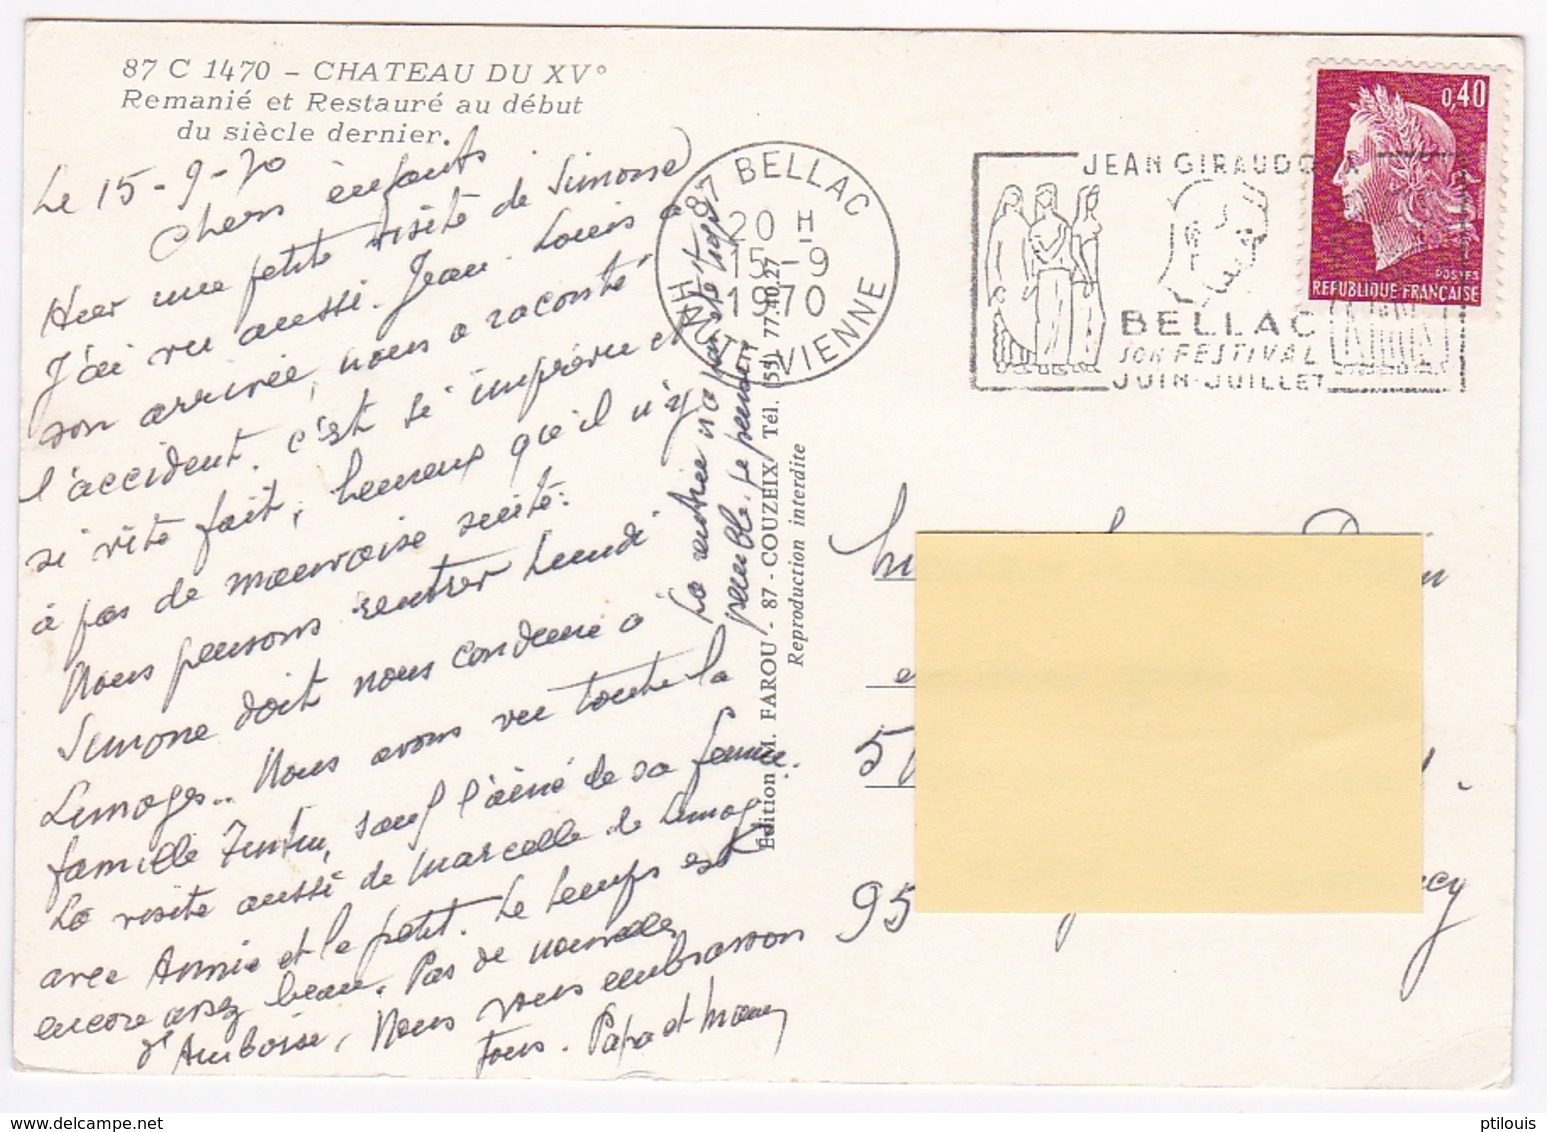 87 C 1470 – CHATEAU DU XV°
Remanié et Restauré au début
du siècle dernier.
Le 15-9-70
Chers enfants
Hier une petite visite de Simone
J'ai vu aussi Jean-Louis à
son arrivée, nous a raconté
l'accident. c'est si imprévu et
si vite fait, heureux qu'il n'y
à pas de mauvaise suite.
Nous pensons rentrer Lundi
Simone doit nous conduire à
Limoges.. Nous avons vu toute la
famille, sauf l'ainé de sa femme.
La visite aussi de Marcelle de Limoges
avec Annie et le petit. Le temps est
encore assez beau. Pas de nouvelles
d'Amboise. Nous vous embrassons
tous. Papa et Maman
La rentrée n'a pas été trop
penible. je pense
Édition M. FAROU - 87 - COUZEIX Tél. (55) 77.40.27
Reproduction interdite
87 BELLAC
20 H
15-9
1970
HAUTE VIENNE
JEAN GIRAUDOUX
BELLAC
SON FESTIVAL
JUIN-JUILLET
0,40
POSTES
REPUBLIQUE FRANÇAISE
95
ptilouis